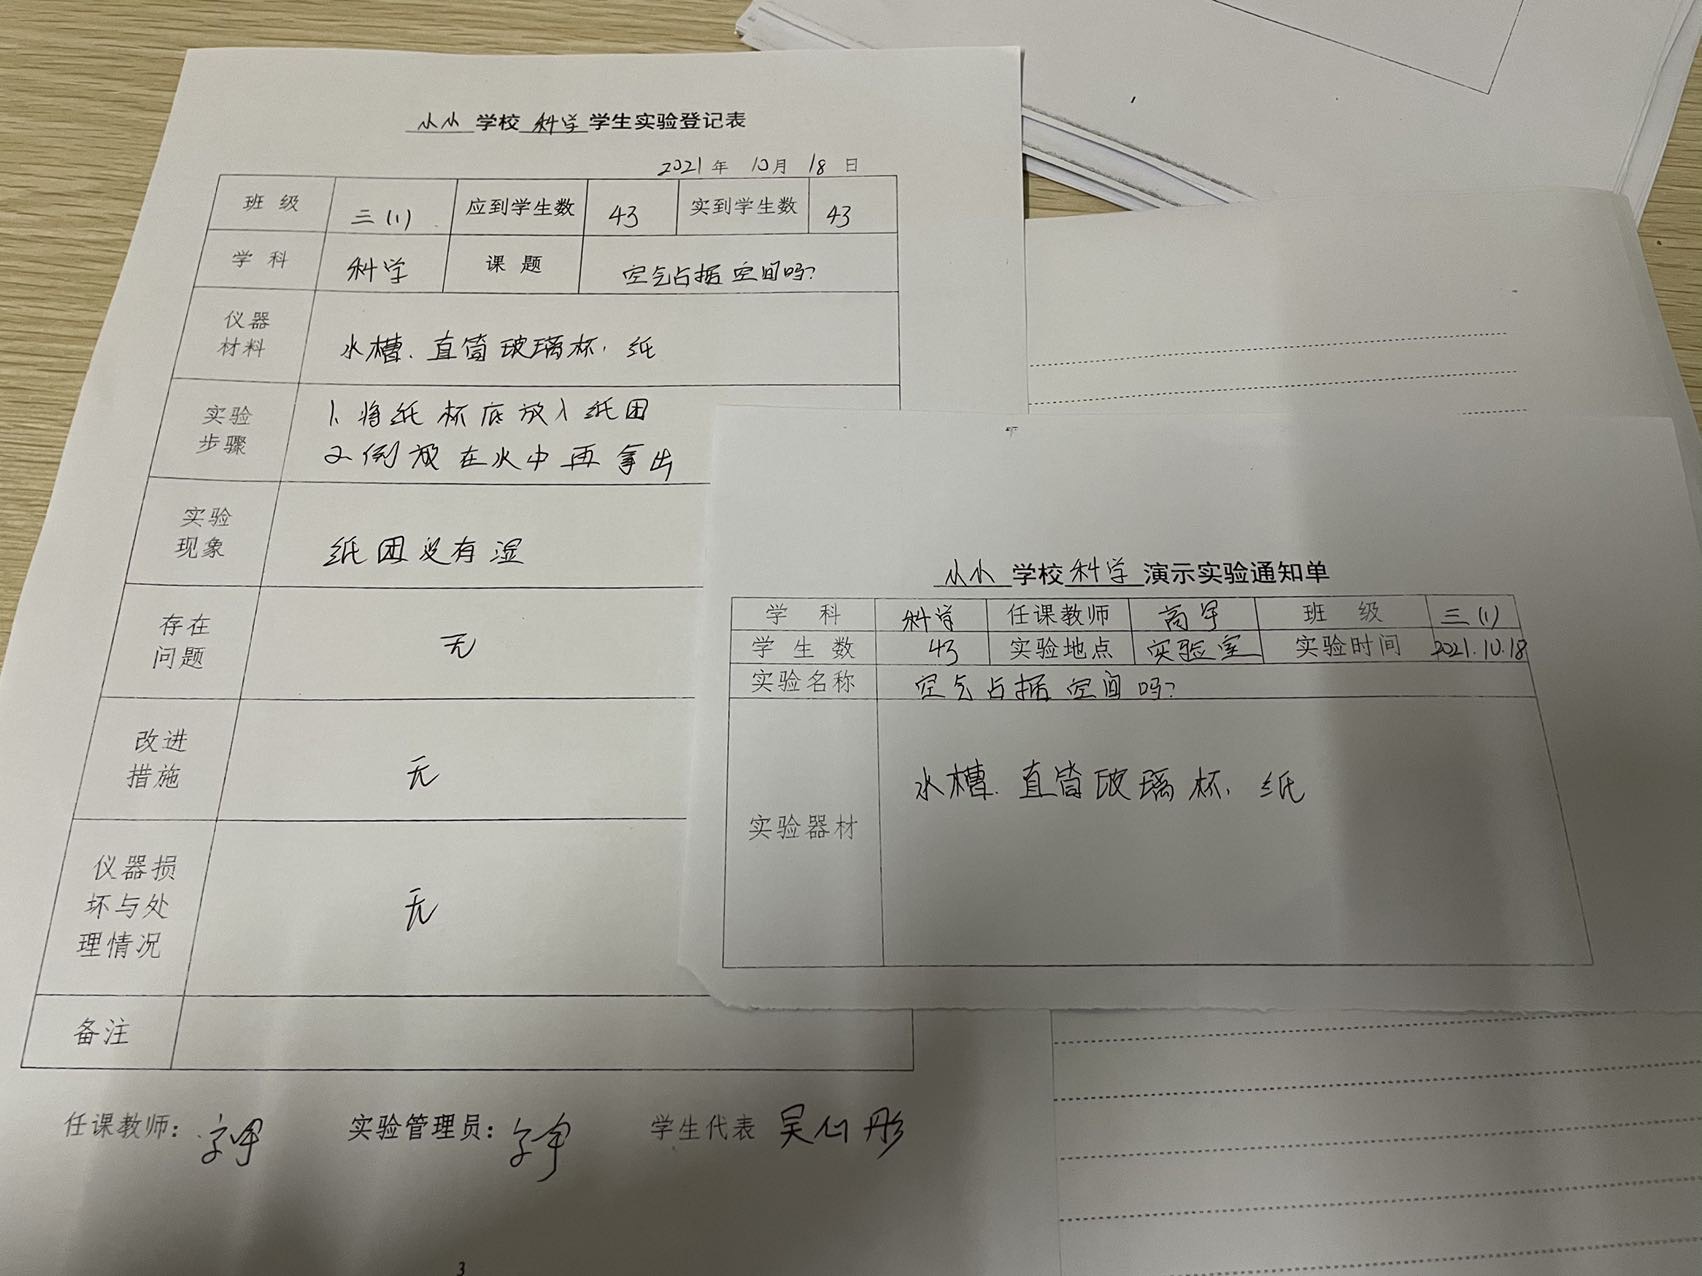 小小学校科学学生实验登记表
2021年 10月 18日
班级 三(1) 应到学生数 43 实到学生数 43
学科 科学 课题 空气占据空间吗?
仪器材料 水槽、直筒玻璃杯、纸
实验步骤 1、将纸杯底放入纸团
2、倒放在水中再拿出
实验现象 纸团没有湿
存在问题 无
改进措施 无
仪器损坏与处理情况 无
备注
任课教师:
实验管理员:
学生代表 吴心彤
3
小小学校科学演示实验通知单
学科 科学 任课教师 班级 三(1)
学生数 43 实验地点 实验室 实验时间 2021.10.18
实验名称 空气占据空间吗?
实验器材 水槽、直筒玻璃杯、纸